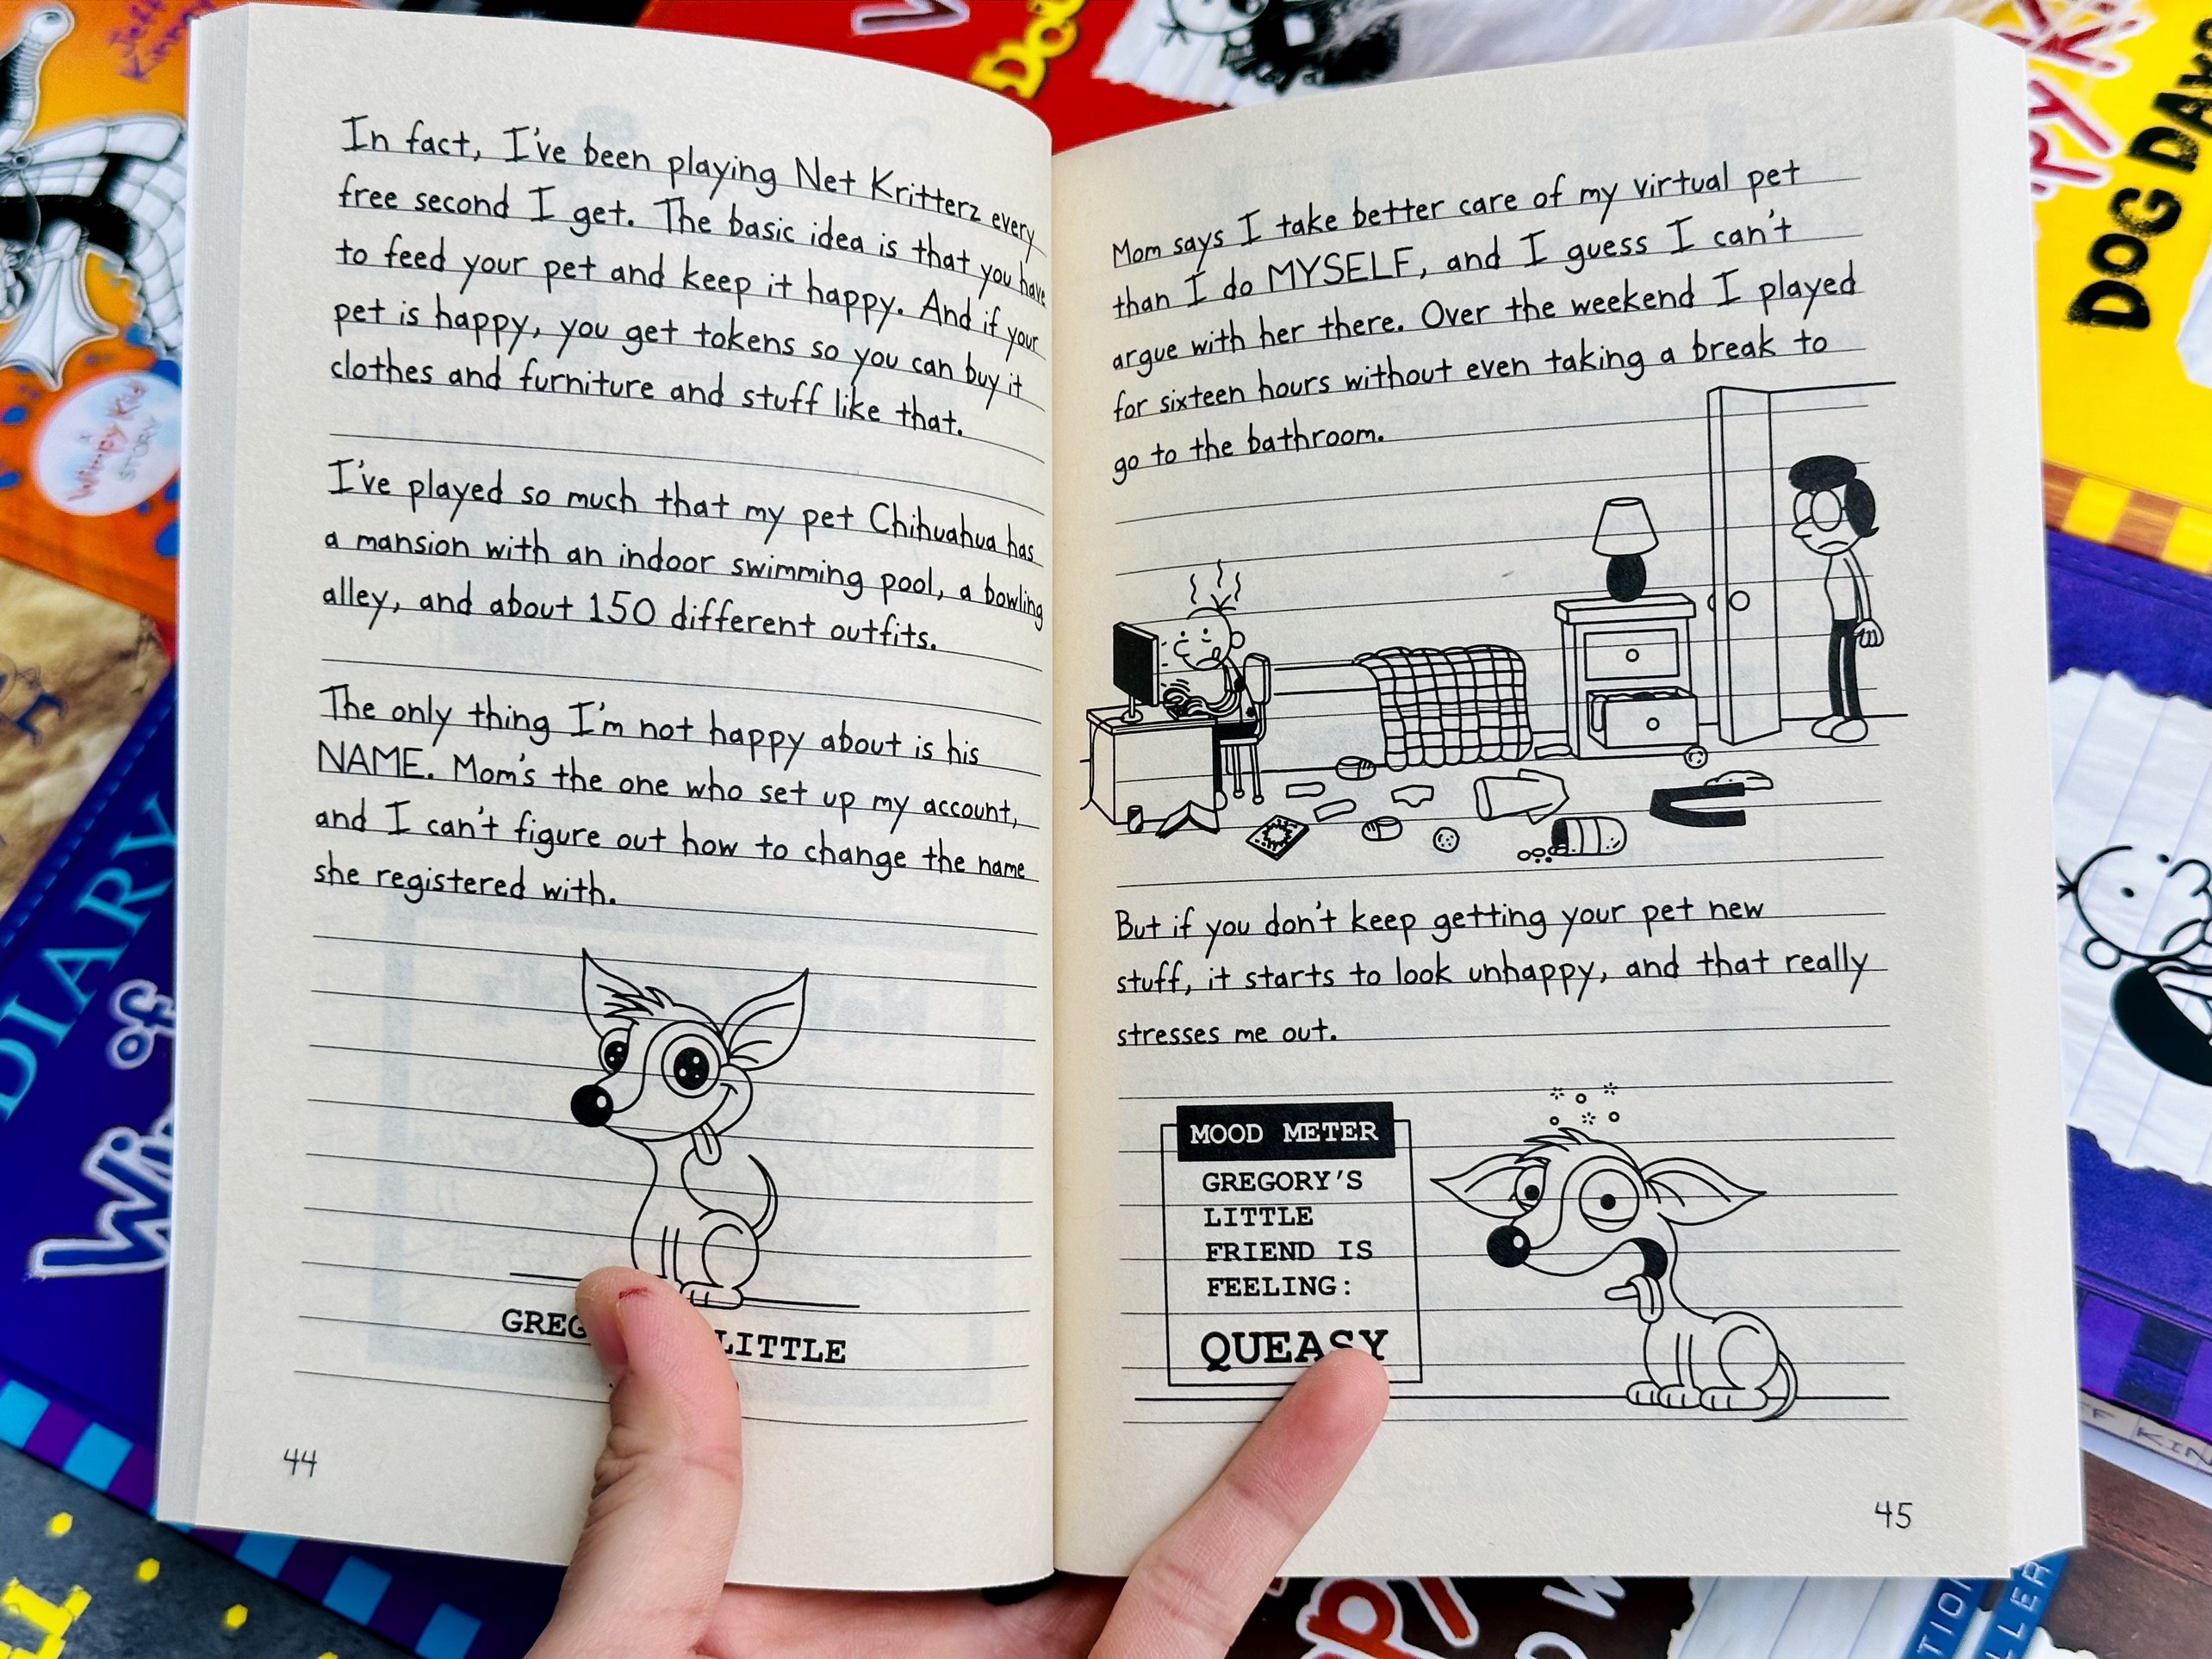 In fact, I've been playing Net Kritterz every
free second I get. The basic idea is that you have
to feed your pet and keep it happy. And if your
pet is happy, you get tokens so you can buy it
clothes and furniture and stuff like that.
I've played so much that my pet Chihuahua has
a mansion with an indoor swimming pool, a bowling
alley, and about 150 different outfits.
The only thing I'm not happy about is his
NAME. Mom's the one who set up my account,
and I can't figure out how to change the name
she registered with.
LITTLE
44
Mom says I take better care of my virtual pet
than I do MYSELF, and I guess I can't
argue with her there. Over the weekend I played
for sixteen hours without even taking a break to
go to the bathroom.
But if you don't keep getting your pet new
stuff, it starts to look unhappy, and that really
stresses me out.
MOOD METER
GREGORY'S
LITTLE
FRIEND IS
FEELING:
QUEASY
45
DOG DAYS
DIARY
of
Wimpy Kid
STORY